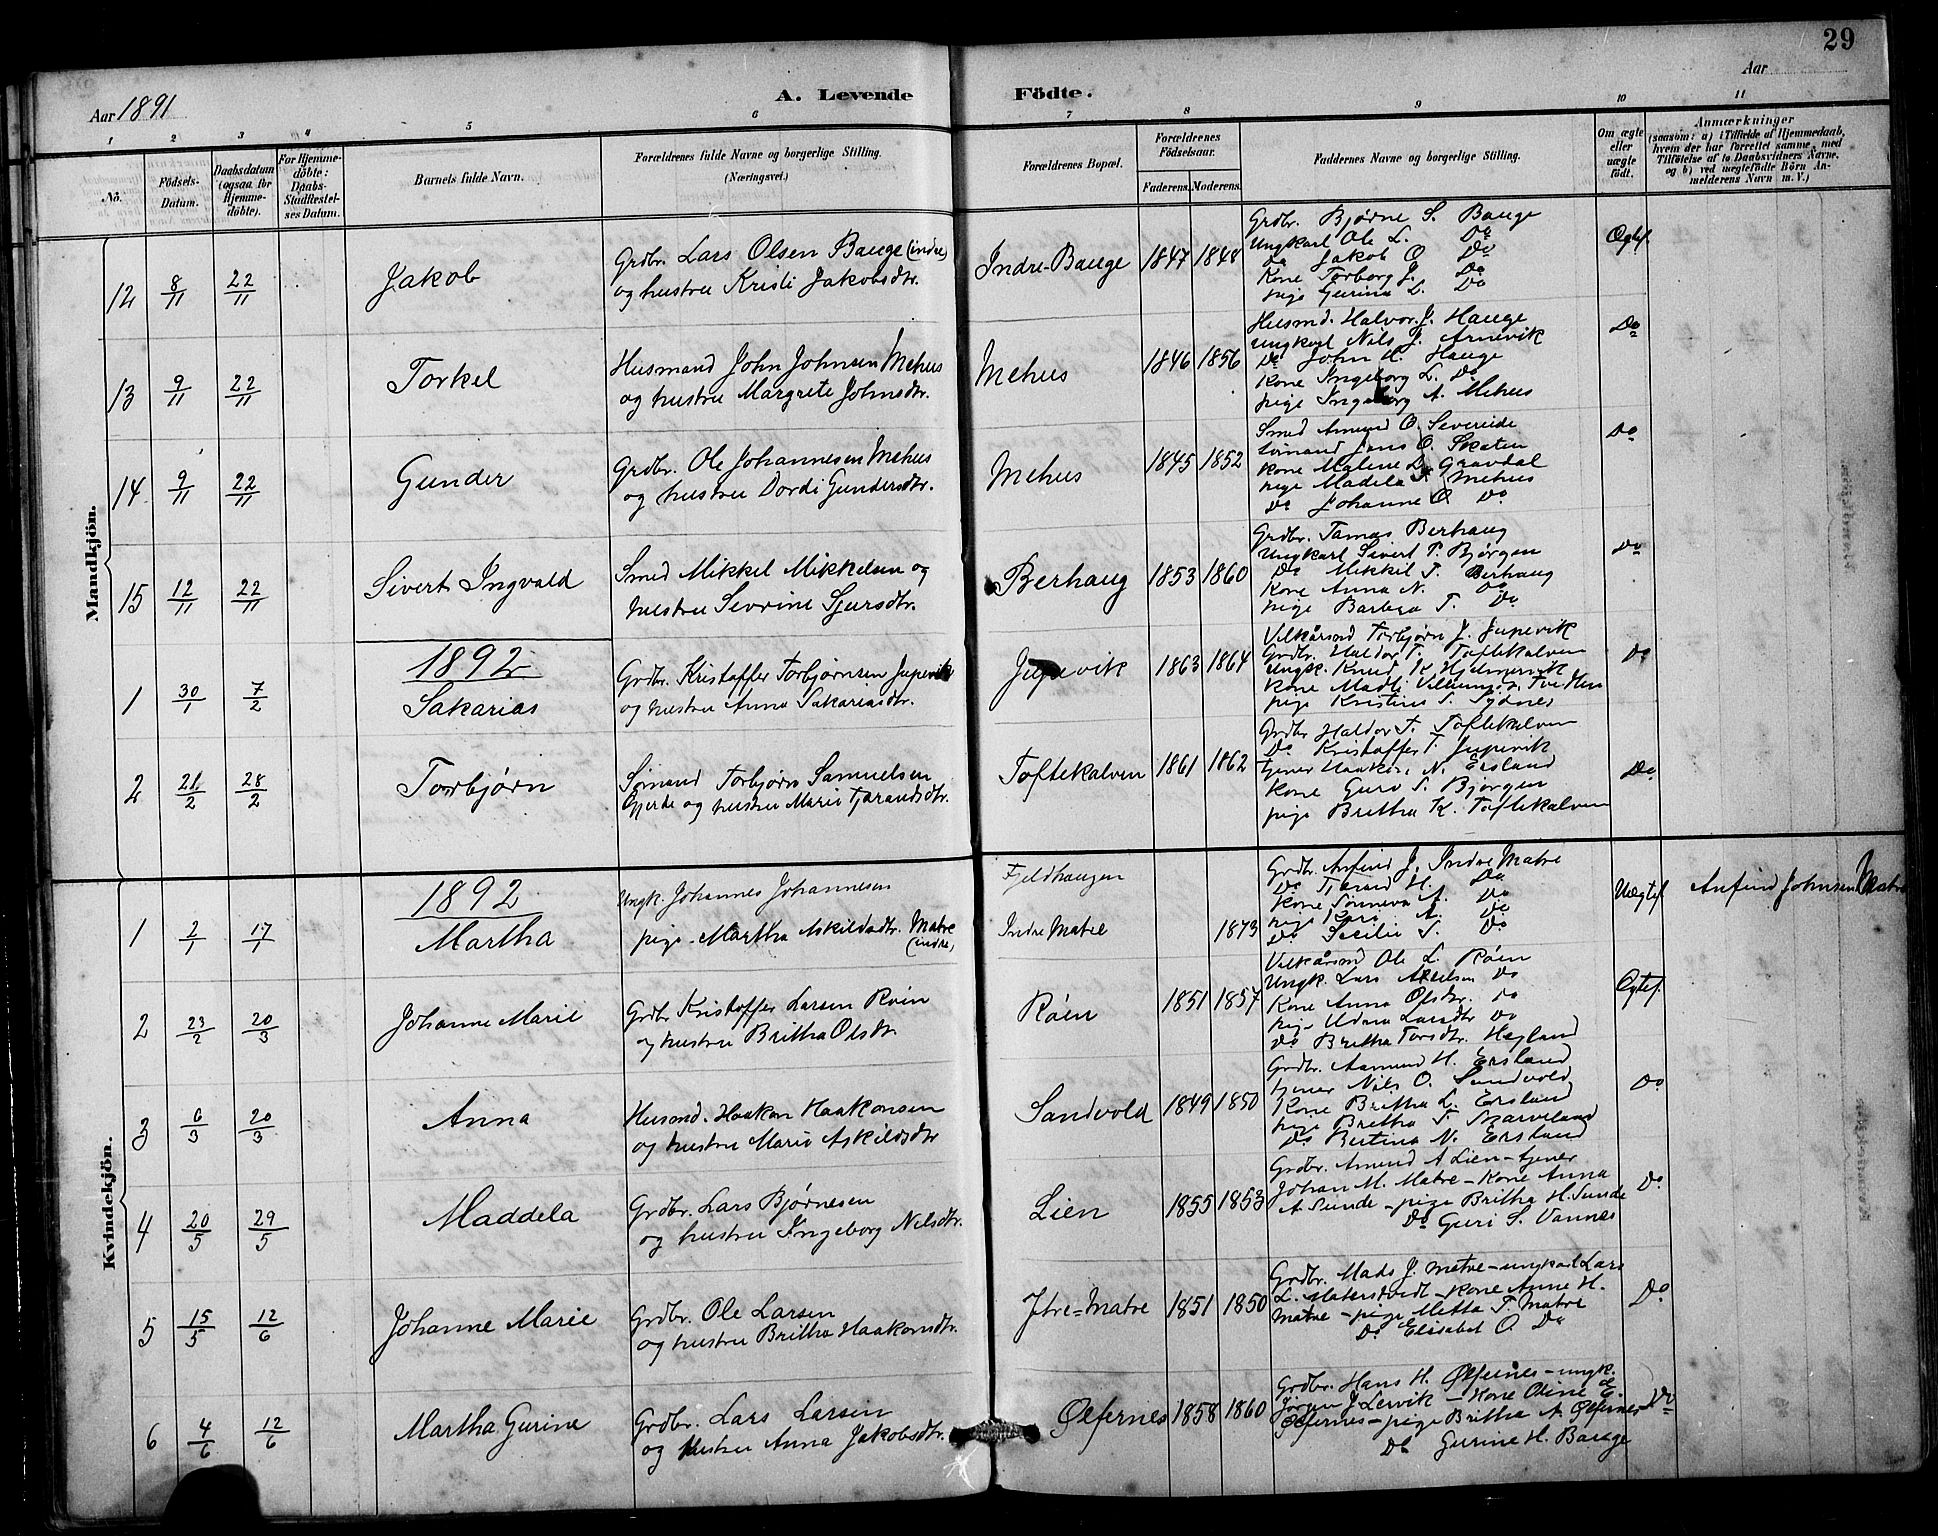 29
Aar 1891
A. Levende Födte.
Aar
1 2 3 4 5 6 7 8 9 10 11
No.
Födsels-Datum.
Daabsdatum (ogsaa for Hjemme-döbte).
For Hjemme-döbte: Daabs-Stadfæstel-ses Datum.
Barnets fulde Navn.
Forældrenes fulde Navne og borgerlige Stilling. (Næringsvei.)
Forældrenes Bopæl.
Forældrenes Födselsaar.
Faderens. Moderens.
Faddernes Navne og borgerlige Stilling.
Om ægte eller uægte födt.
Anmærkninger
(saasom: a) i Tilfælde af Hjemmedaab, hvem der har forrettet samme, med Tilföielse af to Daabsvidners Navne, og b) ved uægtefödte Börn An-melderens Navn m. V.)
Mandkjön.
12 8/11 22/11 Jakob
Grdbr. Lars Olsen Bauge (indre)
og hustru Kristi Jakobsdtr.
Indre-Bauge 1847 1848
Grdbr. Bjørne S. Bauge
Ungkarl Ole L. Do
Do Jakob O. Do
Kone Torborg J. Do
pige Gurina L. Do
Ægtef.
13 9/11 22/11 Torkel
Husmand John Johnsen Mehus
og hustru Margrete Johnsdtr.
Mehus 1846 1856
Husmd. Halvor J. Hauge
Ungkarl Nils J. Arnevik
Do John H. Hauge
Kone Ingeborg L. Do
pige Ingeborg A. Mehus
Do
14 9/11 22/11 Gunder
Grdbr. Ole Johannesen Mehus
og hustru Dordi Gundersdtr.
Mehus 1845 1852
Smed Amund O. Severeide
Sømand Jens O. Skaten
Kone Malene L. Gravdal
pige Madela T. Mehus
Do Johanne O. Do
Do
15 12/11 22/11 Sivert Ingvald
Smed Mikkel Mikkelsen og
hustru Sevrine Sjursdtr.
Berhaug 1853 1860
Grdbr. Tomas Berhaug
Ungkarl Sivert T. Bjørgen
Do Mikkel T. Berhaug
Kone Anna N. Do
pige Barbra T. Do
Do
1892
1 30/1 7/2 Sakarias
Grdbr. Kristoffer Torbjørnsen Jupevik
og hustru Anna Sakariasdtr.
Jupevik 1863 1864
Vilkårsmd Torbjørn J. Jupevik
Grdbr. Haldor T. Toftekalven
Ungk. Knud K. Hjelmervik
Kone Madli
pige Kristine S. Sydnes
Do
2 21/2 28/2 Torbjørn
Sømand Torbjørn Samuelsen
Gjerde og hustru Marie Tjærandsdtr.
Toftekalven 1861 1862
Grdbr Haldor T. Toftekalven
Do Kristoffer T. Jupevik
tjener Haakon N. Ersland
Kone Guro S. Bjørgen
pige Britha K. Toftekalven
Do
Kvindekjön.
1892
1 2/1 17/1 Martha
Ungk. Johannes Johannesen
pige Martha Askildsdtr. Matre (indre)
Fjeldhaugen
Indre Matre 1873
Grdbr. Anfind J. Indre Matre
Do Tjærand H. Do
Kone Sønneva A. Do
pige Kari A. Do
Do Secilie S. Do
Uægtef.
Anfind Johnsen Matre
2 23/2 20/3 Johanne Marie
Grdbr Kristoffer Larsen Røen
og hustru Britha Olsdtr
Røen 1851 1857
Vilkårsmd Ole L. Røen
Ungk. Lars Do
Kone Anna Olsdtr. Do
pige Larsdtr Do
Do Britha Torsdtr. Høgland
Ægtef.
3 6/3 20/3 Anna
Husmd. Haakon Haakonsen
og hustru Marie Askildsdtr
Sandvold 1849 1850
Grdbr. Aamund H. Ersland
tjener Nils O. Sandvold
Kone Britha L. Ersland
pige Britha T. Skarveland
Do Bertina N. Ersland
Do
4 20/5 29/5 Maddela
Grdbr. Lars Bjørnesen
og hustru Ingeborg Nilsdtr.
Lien 1855 1853
Grdbr. Amund A Lien - tjener
Johan M. Matre - Kone Anna
A. Sunde - pige Britha H. Sunde
Do Guri S. Vannes
Do
5 15/5 12/6 Johanne Marie
Grdbr. Ole Larsen
og hustru Britha Haakonsdtr.
Ytre=Matre 1851 1850
Grdbr. Mads J. Matre - ungkarl Lars
L. - Kone Anne H.
Matre - pige Metta T. Matre
Do Elisabet O. Do
Do
6 4/6 12/6 Martha Gurine
Grdbr. Lars Larsen
og hustru Anna Jakobsdtr.
Ølfernes 1858 1860
Grdbr. Hans H. Ølfernes - ungk.
Jørgen J. Lervik - Kone Oline E.
Ølfernes - pige Britha A. Ølfernes
Do Gurine H. Bauge
Do